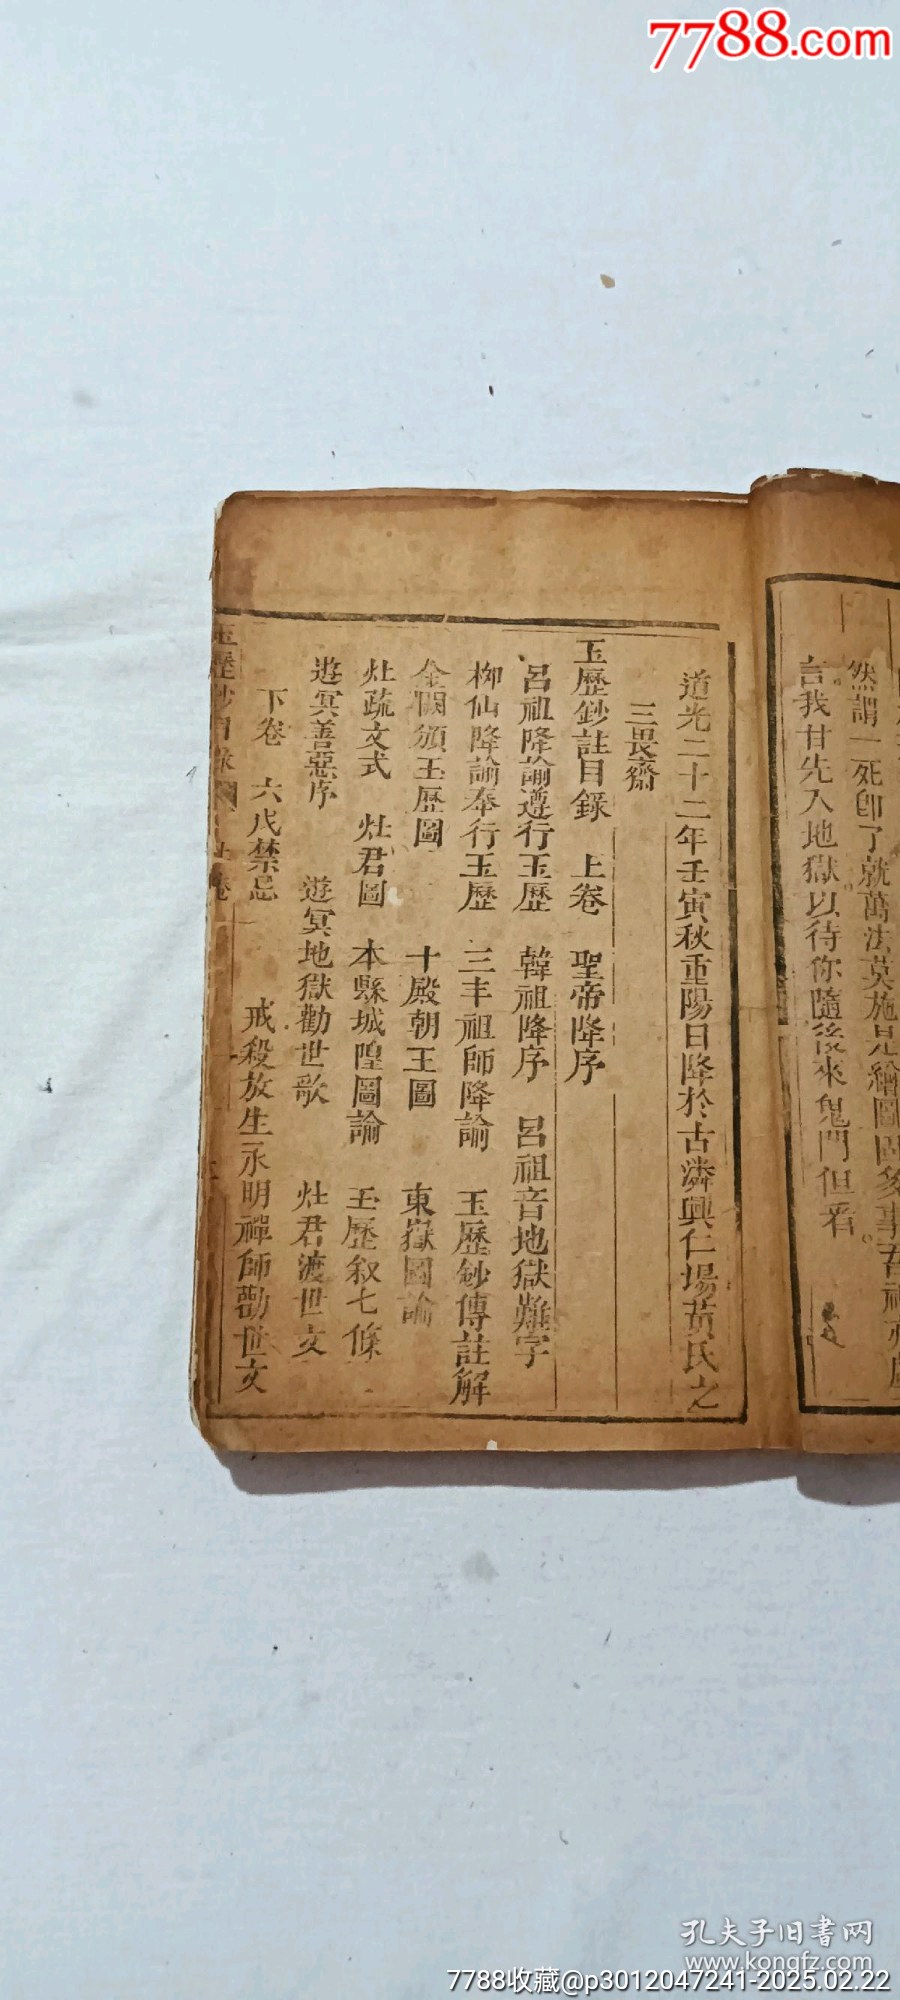 7788.com
然謂一死卽了就萬法莫施是繪圖
言我甘先入地獄以待你隨後來鬼門但看
道光二十二年壬寅秋重陽日降於古潾興仁場黃氏之
三畏齋
玉歷鈔註目錄 上卷 聖帝降序
呂祖降諭遵行玉歷 韓祖降序 呂祖音地獄難字
柳仙降諭奉行玉歷 三丰祖師降諭 玉歷鈔傳註解
金闕頒玉歷圖 十殿朝王圖 東嶽圖諭
灶疏文式 灶君圖 本縣城隍圖諭 玉歷叙七條
遊冥善惡序 遊冥地獄勸世歌 灶君渡世文
下卷 六戊禁忌 戒殺放生永明禪師勸世文
玉歷鈔目錄 上卷
孔夫子旧書网
www.kongfz.com
7788收藏@p3012047241-2025.02.22